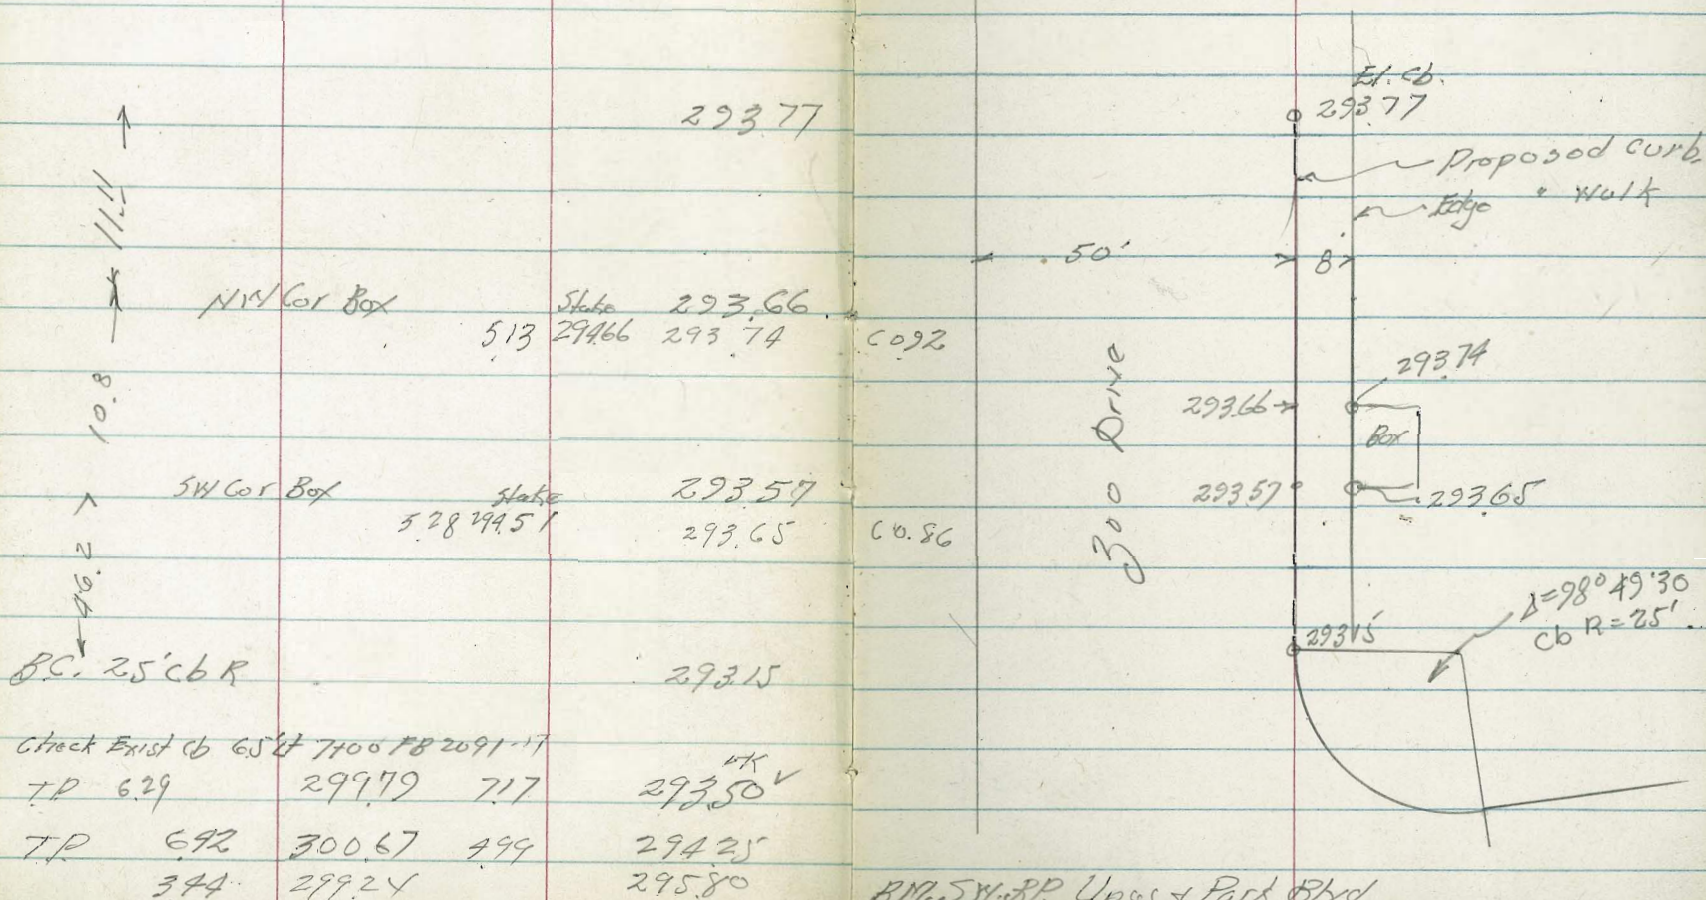 293.77
11.11
NW Cor Box Stake 293.66
5.13 294.66 293.74 C 0.92
10.8
SW Cor Box Stake 293.57
5.28 294.51 293.65 C 0.86
46.2
B.C. 25' Cb R 293.15
Check Exist Cb 65' Lt 7+00 FB 2091-17
OK
TP 6.29 299.79 7.17 293.50 ✓
TP 6.42 300.67 4.99 294.25
3.44 299.24 295.80
El. Cb.
293.77
Proposed Curb
Edge " Walk
50' 8'
Zoo Drive
293.74
293.66
Box
293.57
293.65
Δ=98°49'30
Cb R=25'
293.15
BM. SW. RP. Upas & Park Blvd